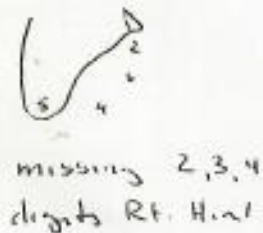 2
5 4
missing 2,3,4
digits Rt. Hind